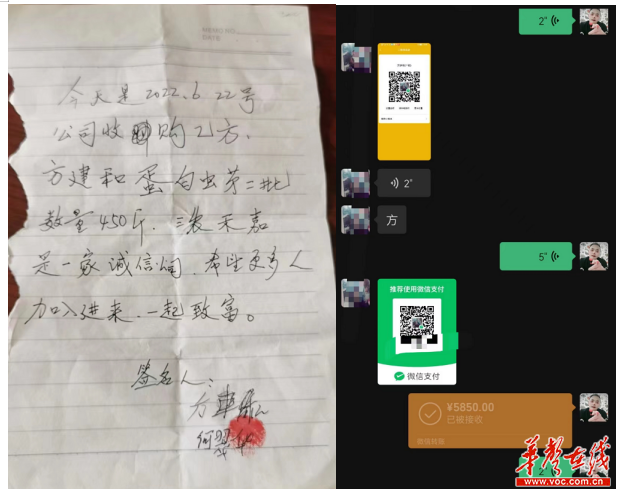 MEMO NO.
DATE
今天是2022.6 22号
公司收购乙方.
方建和蛋白虫第二批
数量450斤.三农禾嘉
是一家诚信 希望更多人
加入进来.一起致富。
签名人:
2"
2"
方
5"
推荐使用微信支付
微信支付
¥5850.00
已被接收
微信转账
华声在线
www.voc.com.cn